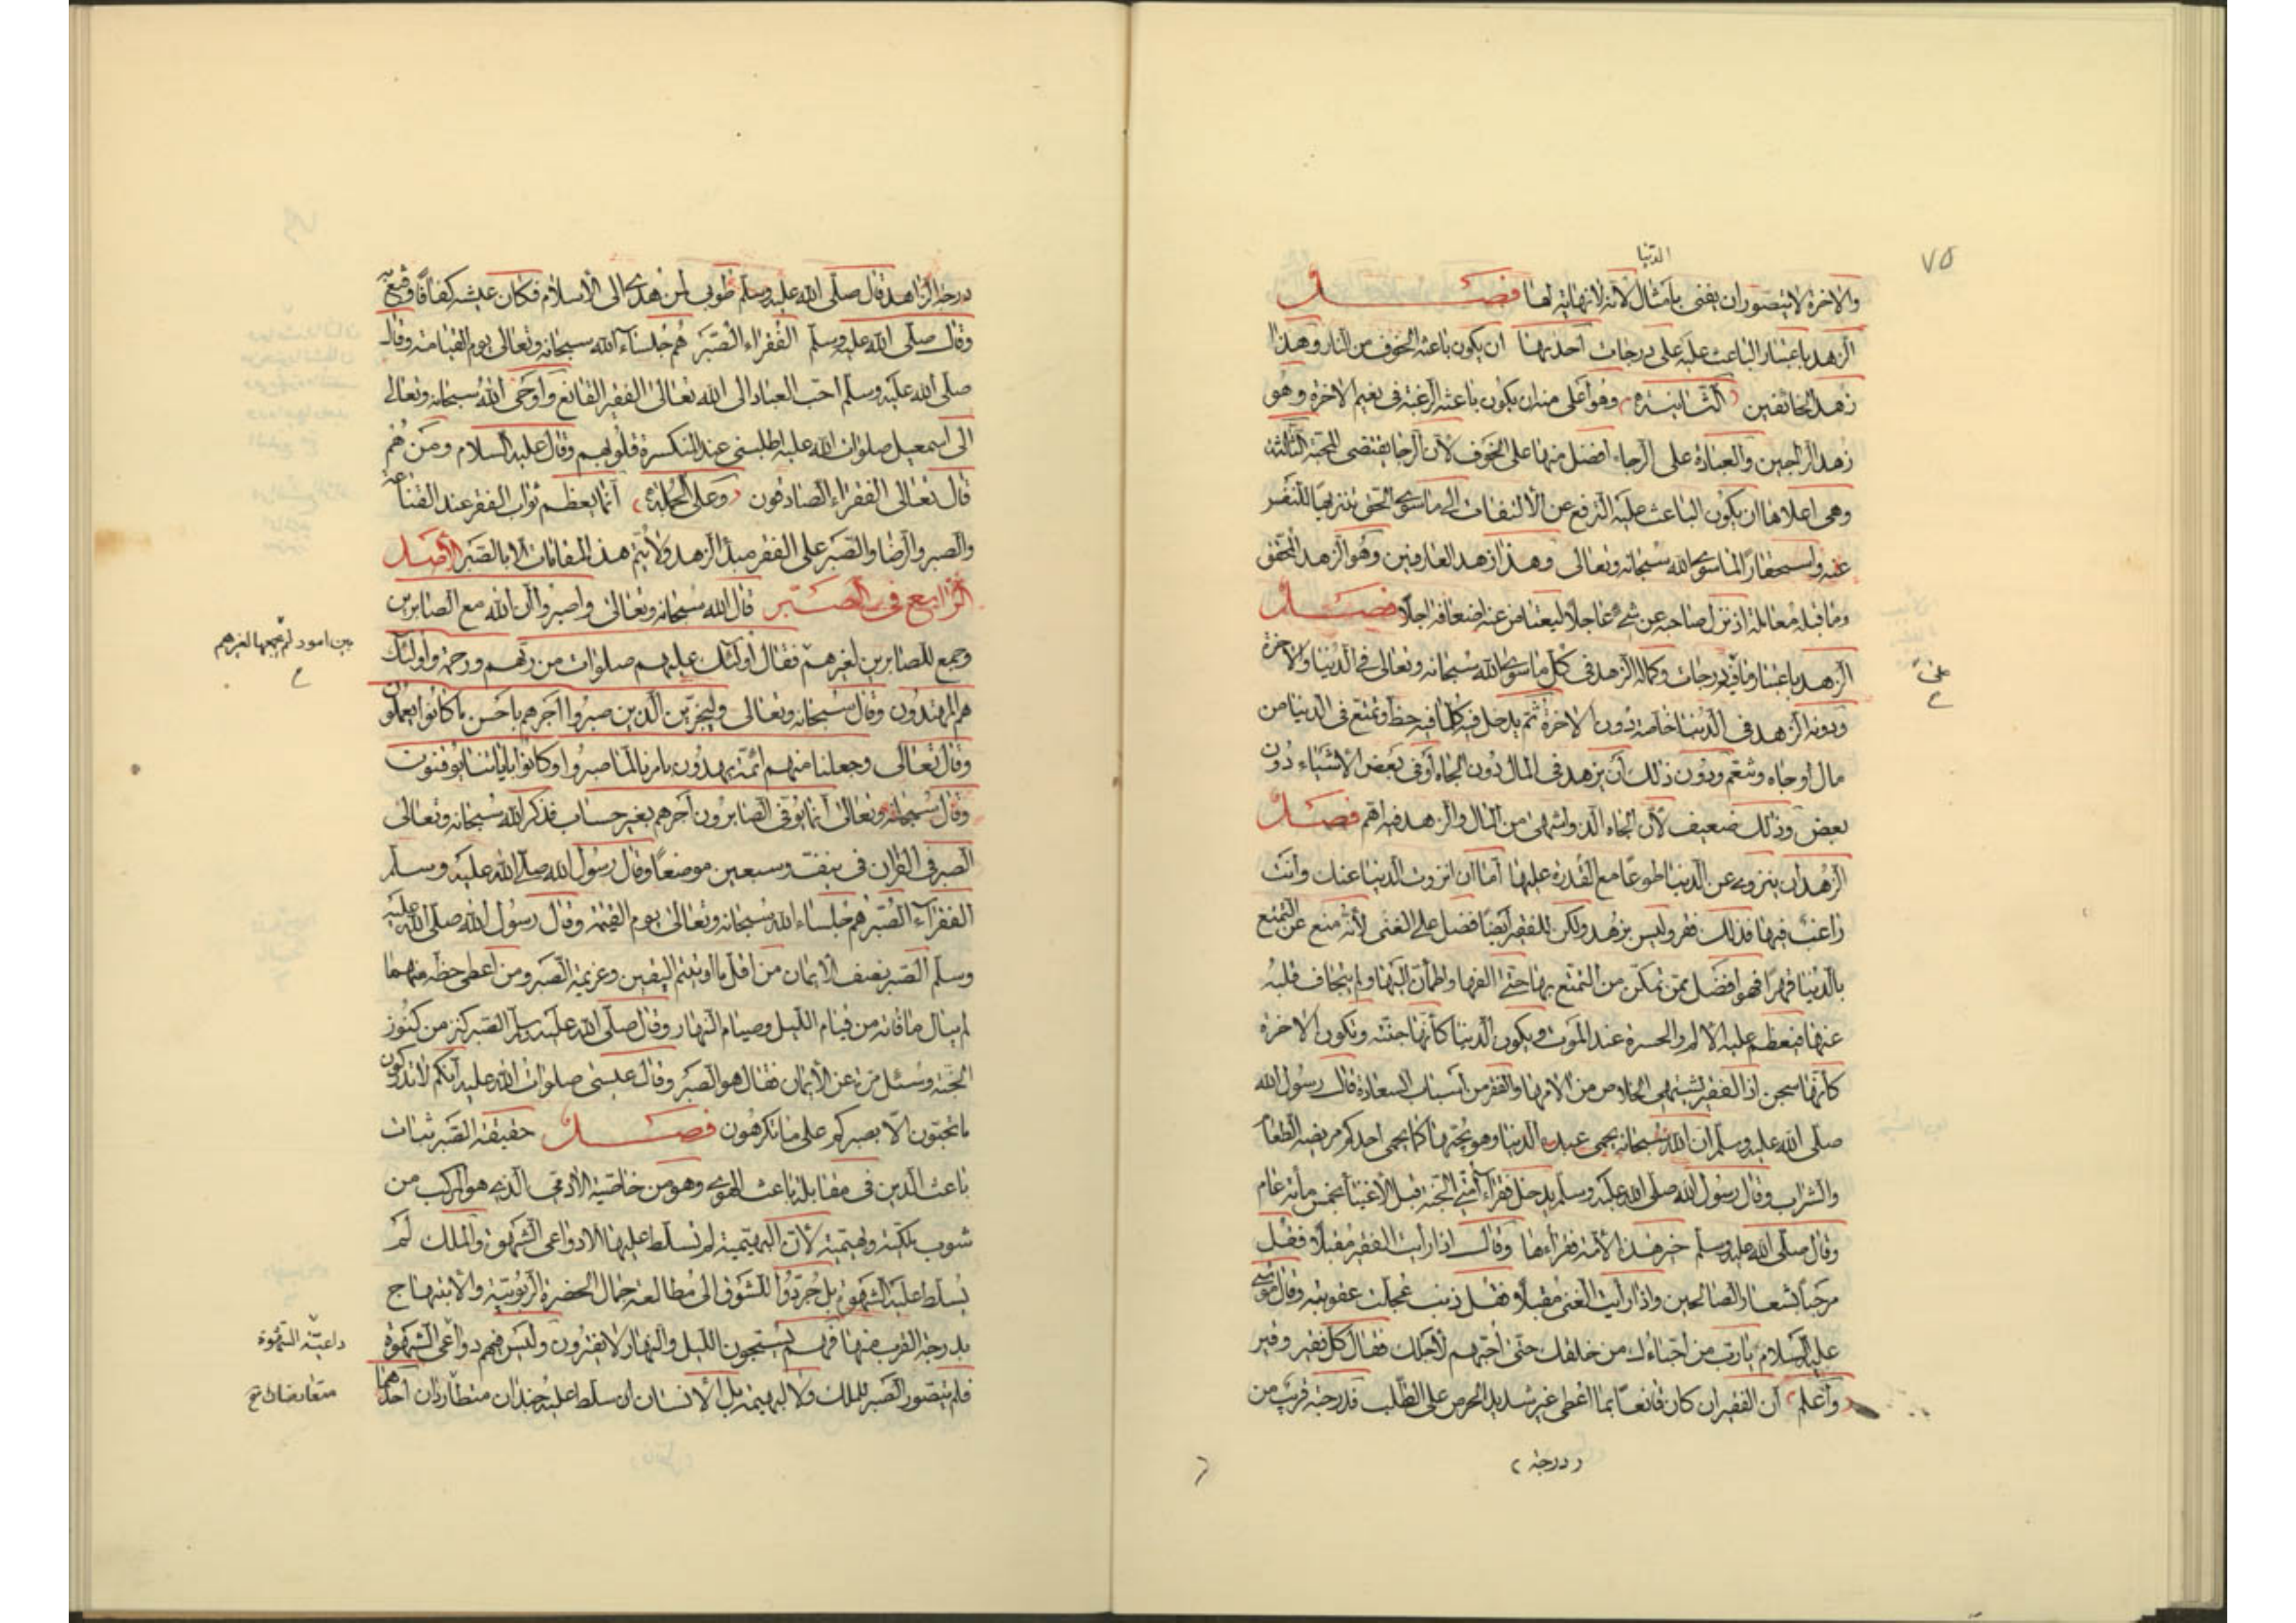 ٧٥
الدنيا
والاخرة لا يتصور ان يفنى بامثال لانه لا نهاية لها فصل
الزهد باعتبار الباعث عليه على درجات احديها ان يكون باعثه الخوف من النار وهذا
زهد الخائفين الثانية وهو اعلى منه ان يكون باعثه الرغبة فى نعيم الاخرة وهو
زهد الراجين والعبادة على الرجاء افضل منها على الخوف لان الرجا يقتضى المحبة الثالثة
وهى اعلاها ان يكون الباعث عليه الترفع عن الالتفات الى ما سوى الحق تنزيها للنفس
عنه واستحقارا لما سوى الله سبحانه وتعالى وهذا زهد العارفين وهو الزهد المحقق
وما قبله معاملة اذ ينزل صاحبه عن شئ عاجلا ليعتاض عنه اضعافه اجلا فصل
الزهد باعتبار ما فيه درجات وكماله الزهد فى كل ما سوى الله سبحانه وتعالى فى الدنيا والاخرة
ودونه الزهد فى الدنيا خاصة دون الاخرة ثم يدخل فيه كل ما فيه حظ وتمتع فى الدنيا من
مال او جاه وتنعم ودون ذلك ان يزهد فى المال دون الجاه او فى بعض الاشياء دون
بعض وذلك ضعيف لان الجاه الذ واشهى من المال والزهد فيه اهم فصل
الزهد ان ينزوى عن الدنيا طوعا مع القدرة عليها اما ان انزوت الدنيا عنك وانت
راغب فيها فذلك فقر وليس بزهد ولكن للفقير ايضا فضل على الغنى لانه منع عن التمتع
بالدنيا قهرا فهو افضل ممن تمكن من التمتع بها حتى الفها واطمأن اليها ولم يتجاف قلبه
عنها فيعظم عليه الالم والحسرة عند الموت ويكون الدنيا كأنها جنته وتكون الاخرة
كأنها سجن اذ الفقير يشتهى الخلاص من الامها والفقر من اسباب السعادة قال رسول الله
صلى الله عليه وسلم ان الله سبحانه يحمى عبده الدنيا وهو يحبه كما يحمى احدكم مريضه الطعام
والشراب وقال رسول الله صلى الله عليه وسلم يدخل فقراء امتى الجنة قبل الاغنياء بخمس مأية عام
وقال صلى الله عليه وسلم خير هذه الامة فقراءها وقال اذا رأيت الفقير مقبلا فقل
مرحبا بشعار الصالحين واذا رأيت الغنى مقبلا فقل ذنب عجلت عقوبته وقال موسى
عليه السلام يا رب من احباءك من خلقك حتى احبهم لاجلك فقال كل فقير وقير
واعلم ان الفقير ان كان قانعا بما اعطى غير شديد الحرص على الطلب فدرجته قريب من
درجة
درجة الزاهد قال صلى الله عليه وسلم طوبى لمن هدى الى الاسلام فكان عيشه كفافا وقنع به
وقال صلى الله عليه وسلم الفقراء الصبر هم جلساء الله سبحانه وتعالى يوم القيامة وقال
صلى الله عليه وسلم احب العباد الى الله تعالى الفقير القانع واوحى الله سبحانه وتعالى
الى اسمعيل صلوات الله عليه اطلبنى عند المنكسرة قلوبهم وقال عليه السلام ومن هم
قال تعالى الفقراء الصادقون وعلى الجملة انما يعظم ثواب الفقر عند القناعة
والصبر والرضا والصبر على الفقر مبدأ الزهد ولا يتم هذه المقامات الا بالصبر الاصل
الرابع فى الصبر قال الله سبحانه وتعالى واصبروا ان الله مع الصابرين
وجمع للصابرين لغيرهم فقال اولئك عليهم صلوات من ربهم ورحمة واولئك
بين امور لم يجمعها لغيرهم
هم المهتدون وقال سبحانه وتعالى ولنجزين الذين صبروا اجرهم باحسن ما كانوا يعملون
وقال تعالى وجعلنا منهم ائمة يهدون بامرنا لما صبروا وكانوا باياتنا يوقنون
وقال سبحانه وتعالى انما يوفى الصابرون اجرهم بغير حساب فذكر الله سبحانه وتعالى
الصبر فى القران فى نيف وسبعين موضعا وقال رسول الله صلى الله عليه وسلم
الفقراء الصبر هم جلساء الله سبحانه وتعالى يوم القيمة وقال رسول الله صلى الله عليه
وسلم الصبر نصف الايمان من اقل ما اوتيتم اليقين وعزيمة الصبر ومن اعطى حظه منهما
لم يبال ما فاته من قيام الليل وصيام النهار وقال صلى الله عليه وسلم الصبر كنز من كنوز
الجنة وسئل مرة عن الايمان فقال هو الصبر وقال عيسى صلوات الله عليه انكم لا تدركون
ما تحبون الا بصبركم على ما تكرهون فصل حقيقة الصبر ثبات
باعث الدين فى مقابلة باعث الهوى وهو من خاصية الادمى الذى هو المركب من
شوب ملكية وبهيمية لان البهيمية لم تسلط عليها الا دواعى الشهوة والملك لم
يسلط عليه الشهوة بل جردوا للشوق الى مطالعة جمال الحضرة الربوبية والابتهاج
بدرجة القرب منها فهم يسبحون الليل والنهار لا يفترون وليس فيهم دواعى الشهوة
داعية الشهوة
فلم يتصور الصبر للملك ولا للبهيمة بل الانسان ان سلط عليه جندان متطاردان احدهما
متعارضان